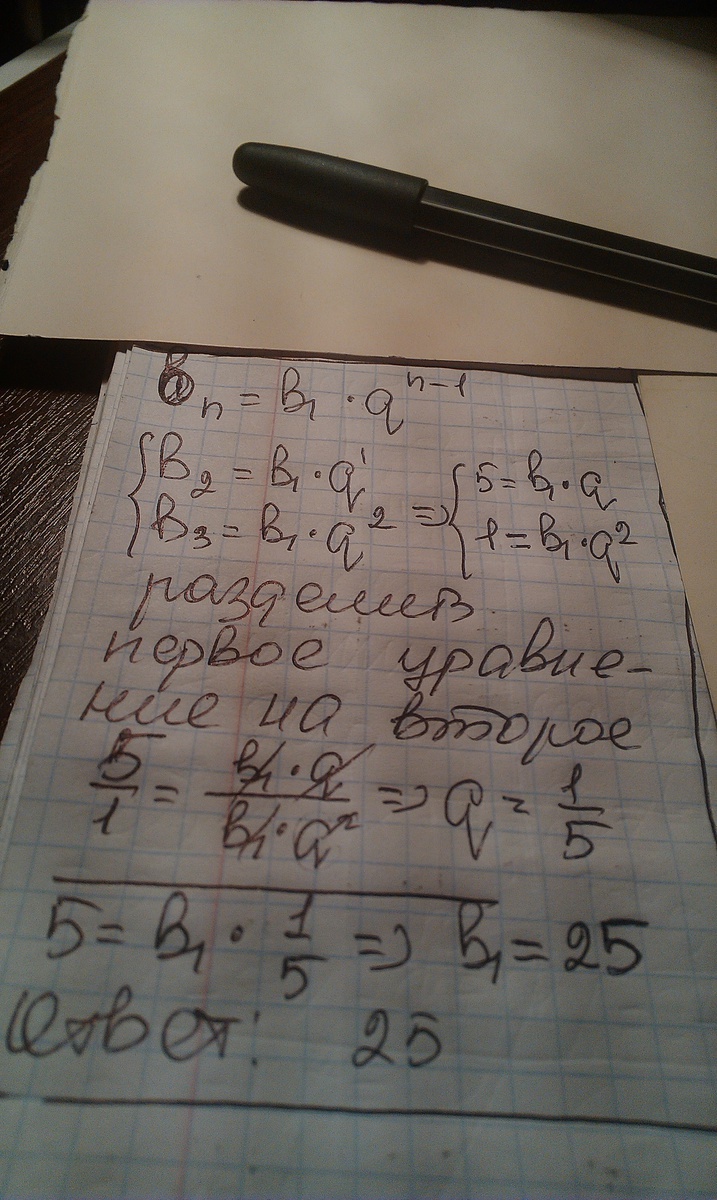 вₙ = в₁ · q^{n-1}
{ в₂ = в₁ · q¹
{ в₃ = в₁ · q² => { 5 = в₁ · q
{ 1 = в₁ · q²
разделив
первое уравне-
ние на второе
5/1 = в₁ · q / в₁ · q² => q = 1/5
5 = в₁ · 1/5 => в₁ = 25
Ответ: 25